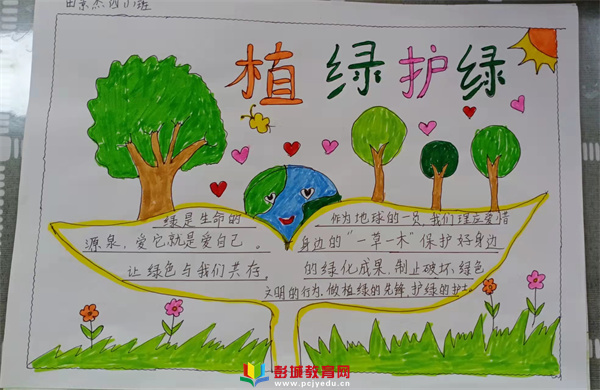 植绿护绿
绿是生命的
源泉，爱它就是爱自己。
让绿色与我们共存。
作为地球的一员，我们理应爱惜
身边的“一草一木”保护好身边
的绿化成果，制止破坏绿色
文明的行为，做植绿的先锋，护绿的护士
彭城教育网
www.pcjyedu.cn